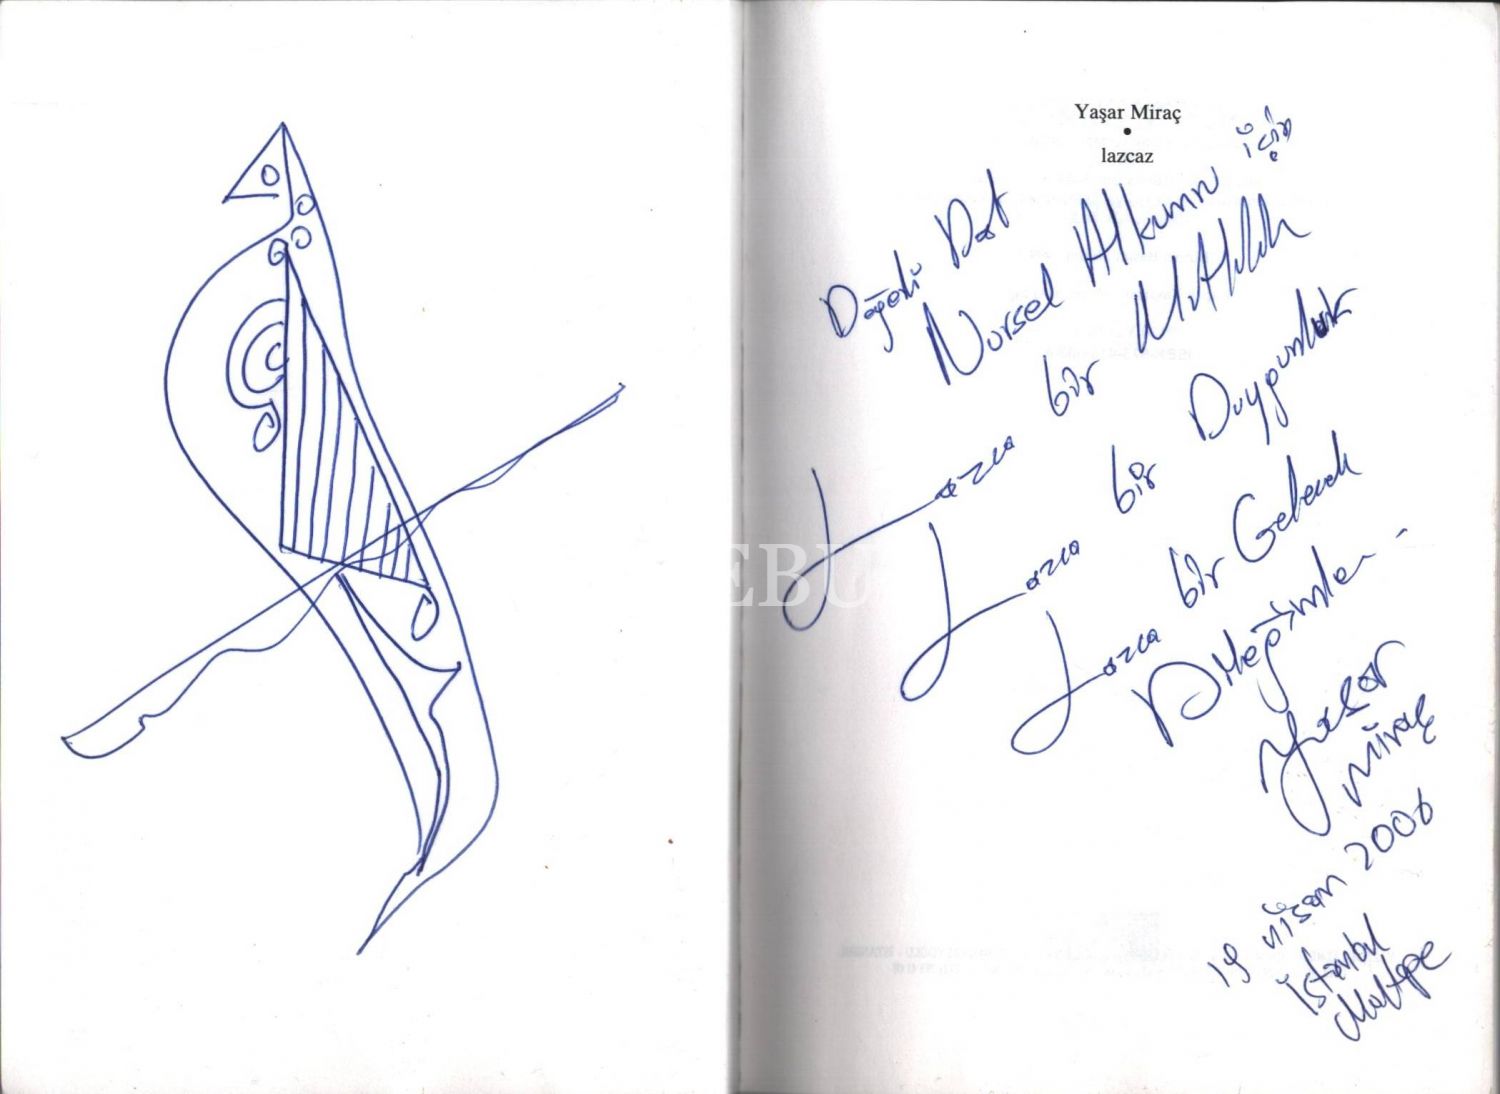 Yaşar Miraç
•
lazcaz
Değerli Dost
Nursel Alkımın için
Lazca bir Mutluluk
Lazca bir Duygunluk
Lazca bir Gelecek
Dileğimle..
Yaşar
Miraç
19 nisan 2006
istanbul
Maltepe
EBU